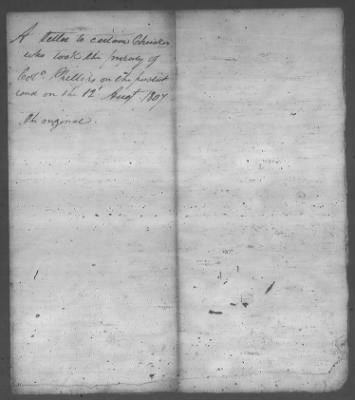 A letter to certain Chiefs
who took the money of
Col.o Phillips on the publick
road on the 12t Augt 1807
the original.